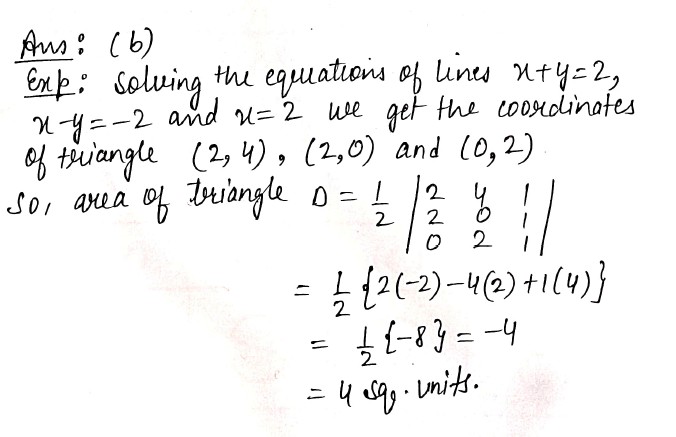 Ans : (b)
Exp : Solving the equations of lines x+y=2,
x-y=-2 and x=2 we get the coordinates
of triangle (2, 4), (2,0) and (0,2)
So, area of triangle D = 1/2 |2 4 1|
|2 0 1|
|0 2 1|
= 1/2 {2(-2)-4(2)+1(4)}
= 1/2 {-8} = -4
= 4 sq. units.